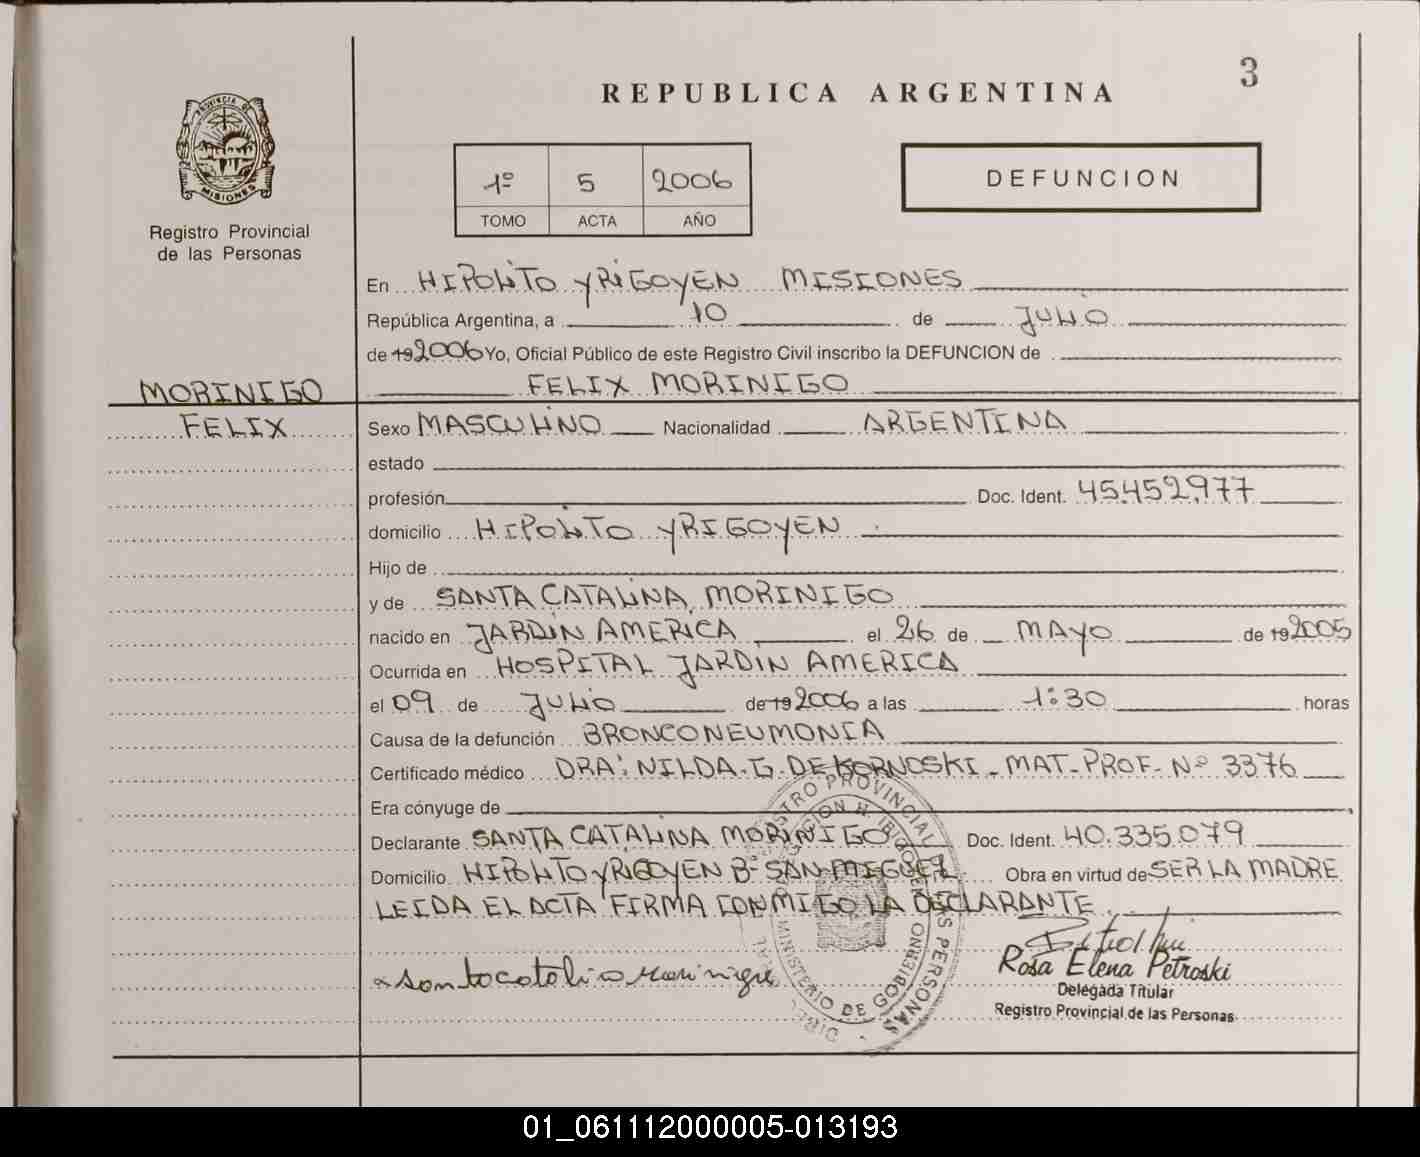 3
REPUBLICA ARGENTINA
PROVINCIA DE
MISIONES
Registro Provincial
de las Personas
1º 5 2006
TOMO ACTA AÑO
DEFUNCION
En HIPOLITO YRIGOYEN MISIONES
República Argentina, a 10 de JULIO
de 19 2006 Yo, Oficial Público de este Registro Civil inscribo la DEFUNCION de
MORINIGO FELIX MORINIGO
FELIX Sexo MASCULINO Nacionalidad ARGENTINA
estado
profesión Doc. Ident. 45.452.977
domicilio HIPOLITO YRIGOYEN
Hijo de
y de SANTA CATALINA MORINIGO
nacido en JARDIN AMERICA el 26 de MAYO de 19 2005
Ocurrida en HOSPITAL JARDIN AMERICA
el 09 de JULIO de 19 2006 a las 1:30 horas
Causa de la defunción BRONCONEUMONIA
Certificado médico DRA: NILDA. G. DE KORNOSKI - MAT- PROF- Nº 3376
Era cónyuge de
Declarante SANTA CATALINA MORINIGO Doc. Ident. 40.335.079
Domicilio HIPOLITO YRIGOYEN Bº SAN MIGUEL Obra en virtud de SER LA MADRE
LEIDA EL ACTA FIRMA CONMIGO LA DECLARANTE.
REGISTRO PROVINCIAL DE LAS PERSONAS
MINISTERIO DE GOBIERNO
x santa catalina morinigo
Rosa Elena Petroski
Delegada Titular
Registro Provincial de las Personas
01_061112000005-013193